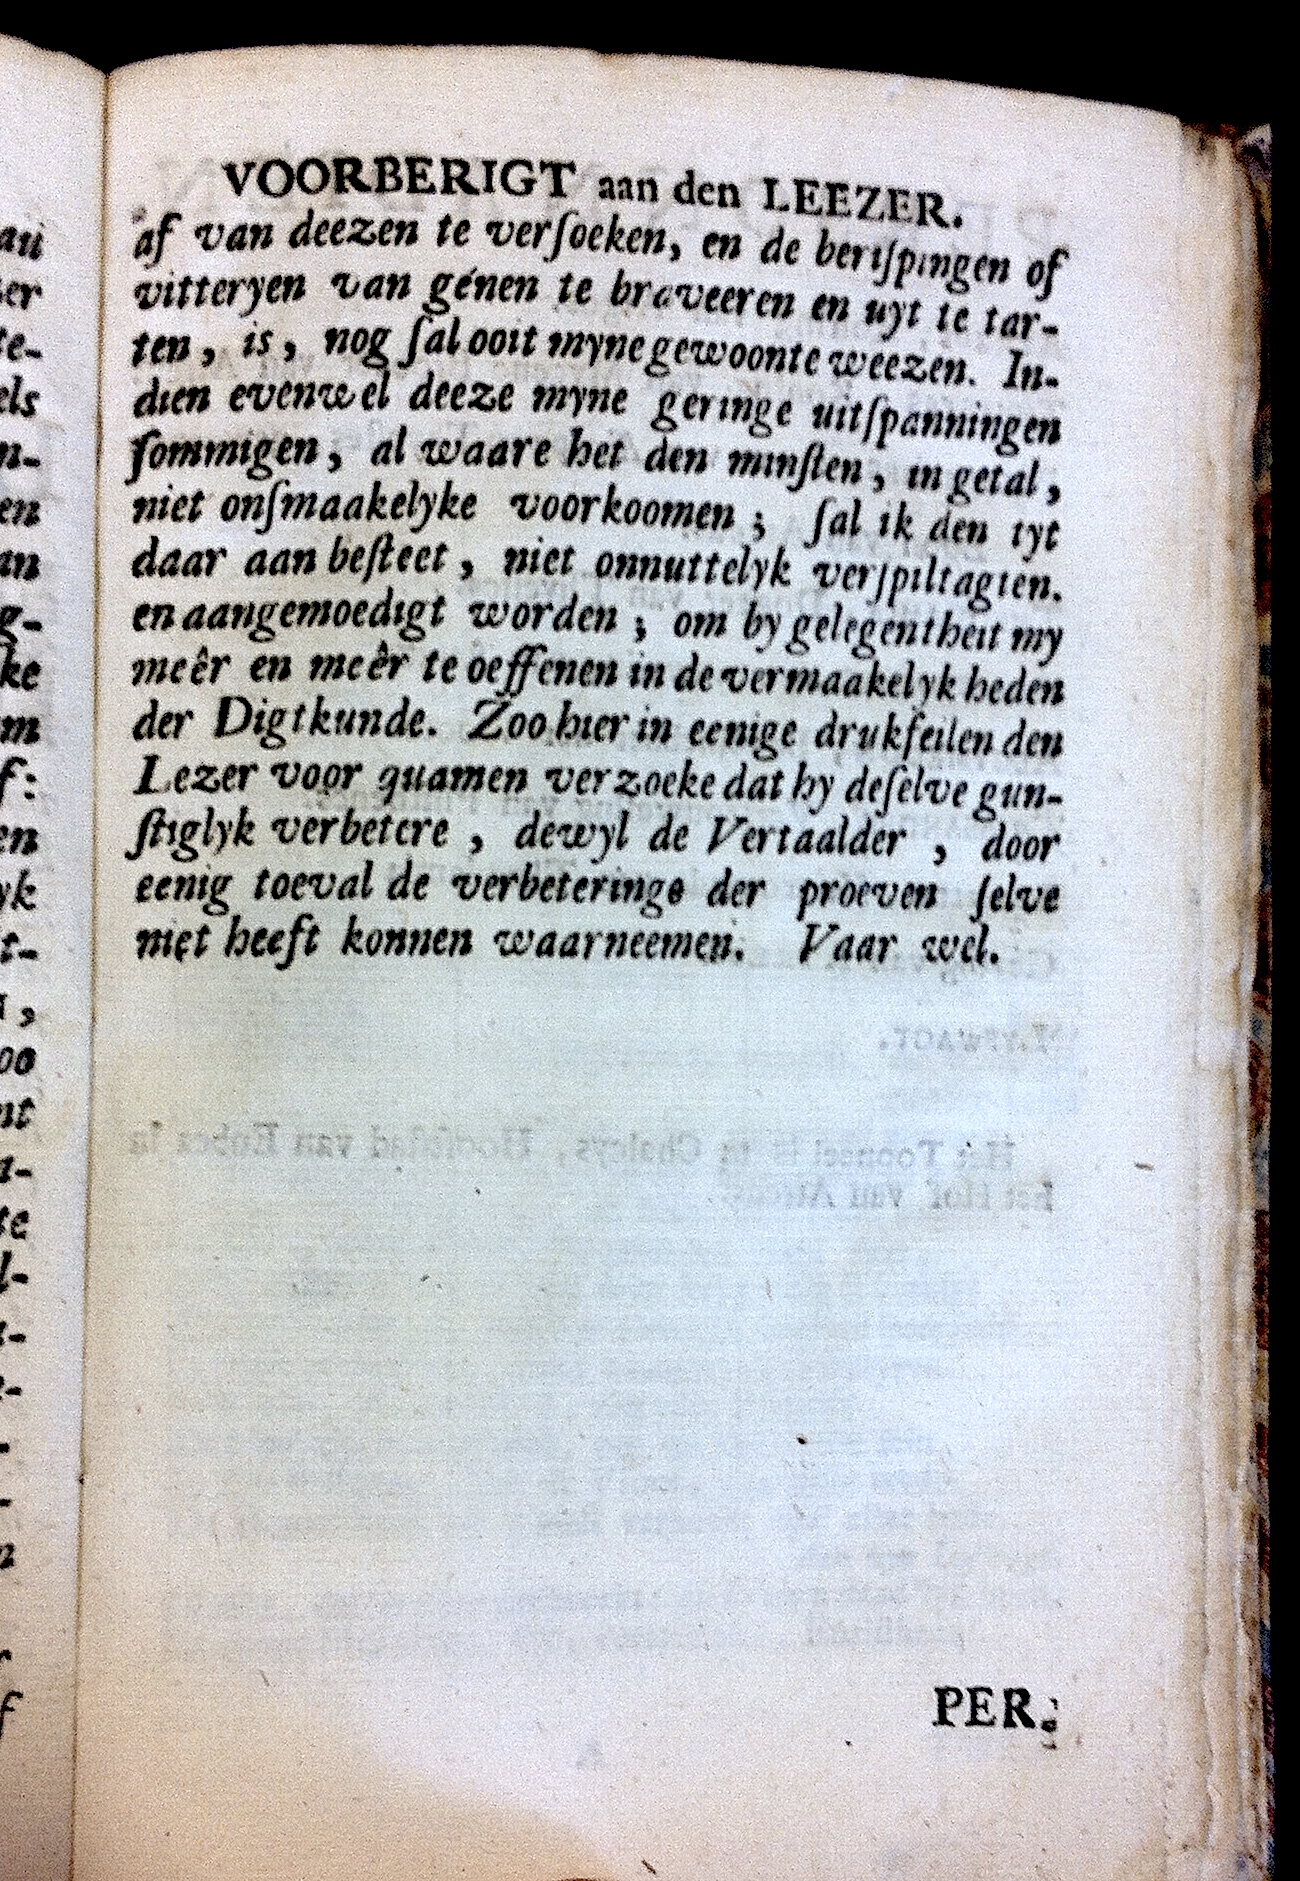 VOORBERIGT aan den LEEZER.
af van deezen te verſoeken, en de beriſpingen of
vitteryen van génen te braveeren en uyt te tar-
ten, is, nog ſal ooit myne gewoonte weezen. In-
dien evenwel deeze myne geringe uitſpanningen
ſommigen, al waare het den minſten, in getal,
niet onſmaakelyke voorkoomen; ſal ik den tyt
daar aan beſteet, niet onnuttelyk verſpilt agten.
en aangemoedigt worden; om by gelegentheit my
meêr en meêr te oeffenen in de vermaakelyk heden
der Digtkunde. Zoo hier in eenige drukfeilen den
Lezer voor quamen verzoeke dat hy deſelve gun-
ſtiglyk verbetere, dewyl de Vertaalder, door
eenig toeval de verbeteringe der proeven ſelve
niet heeft konnen waarneemen. Vaar wel.
PER.